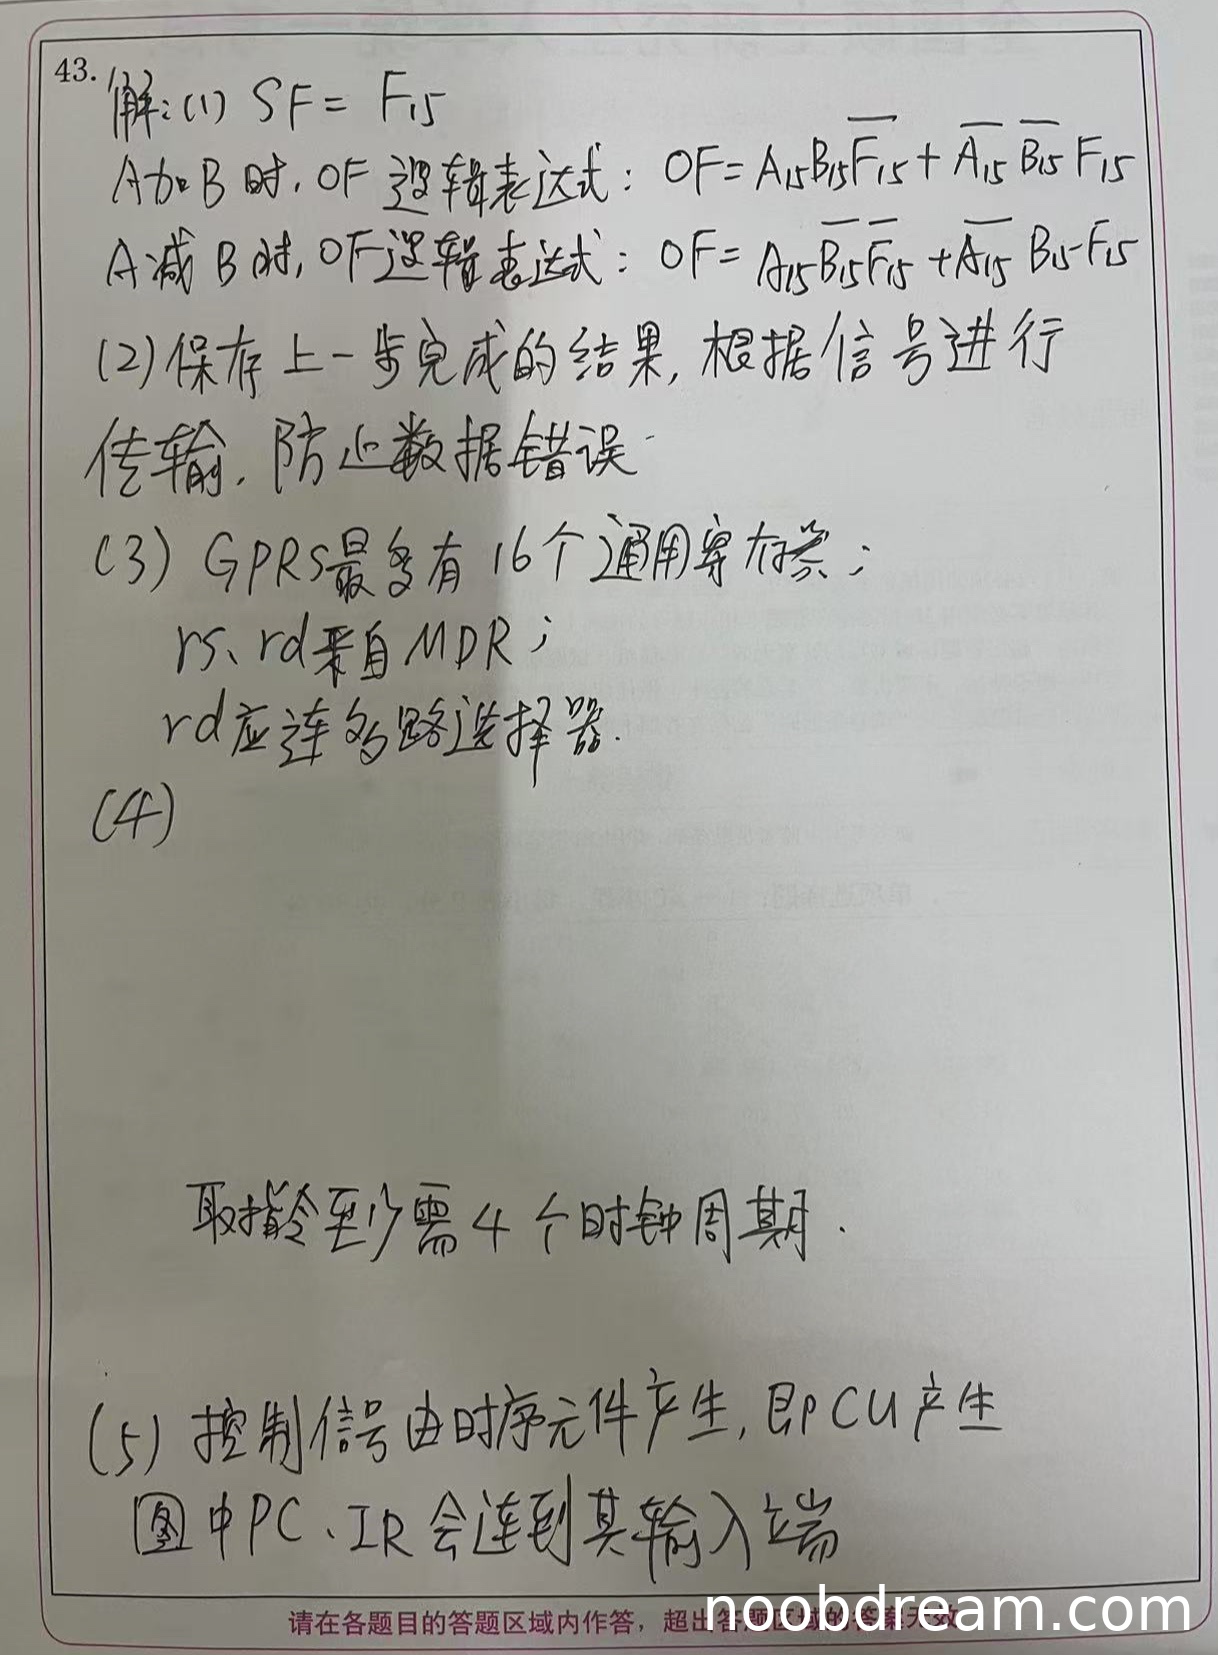 43.
解:(1) SF = F₁₅
A加B时, OF逻辑表达式: OF = A₁₅B₁₅F̅₁₅ + A̅₁₅ B̅₁₅ F₁₅
A减B时, OF逻辑表达式: OF = A₁₅B̅₁₅F̅₁₅ + A̅₁₅ B₁₅ F₁₅
(2) 保存上一步完成的结果, 根据信号进行
传输. 防止数据错误.
(3) GPRS最多有16个通用寄存器;
rs、rd来自MDR;
rd应连多路选择器.
(4)
取指令至少需4个时钟周期.
(5) 控制信号由时序元件产生, 即CU产生
图中PC、IR会连到其输入端
请在各题目的答题区域内作答，超出答题区域的答案无效
noobdream.com